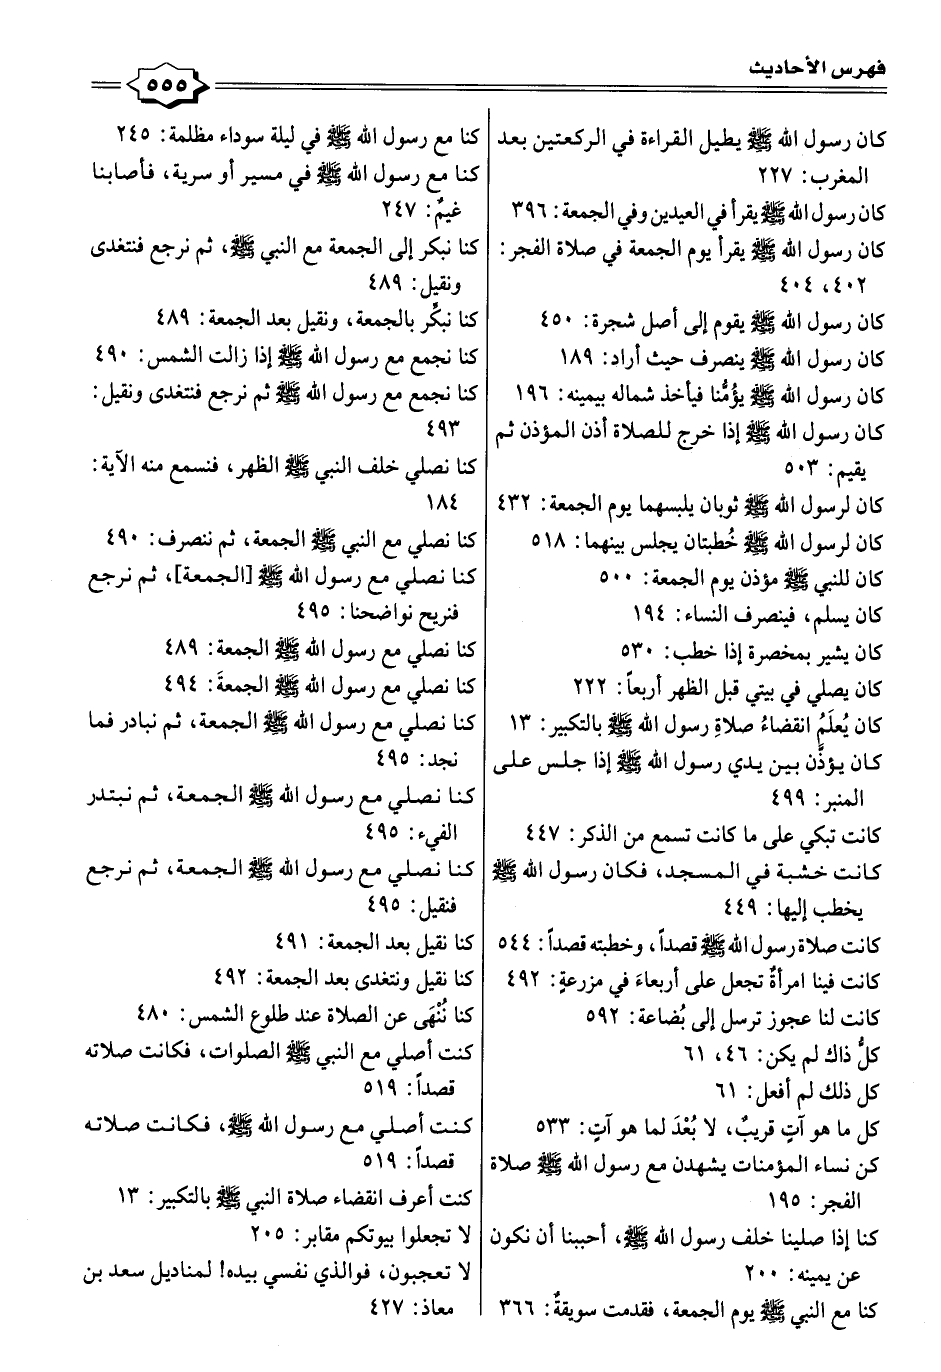 فهرس الأحاديث
٥٥٥
كان رسول الله ﷺ يطيل القراءة في الركعتين بعد
المغرب: ٢٢٧
كان رسول الله ﷺ يقرأ في العيدين وفي الجمعة: ٣٩٦
كان رسول الله ﷺ يقرأ يوم الجمعة في صلاة الفجر:
٤٠٢، ٤٠٤
كان رسول الله ﷺ يقوم إلى أصل شجرة: ٤٥٠
كان رسول الله ﷺ ينصرف حيث أراد: ١٨٩
كان رسول الله ﷺ يؤُمُّنا فيأخذ شماله بيمينه: ١٩٦
كان رسول الله ﷺ إذا خرج للصلاة أذن المؤذن ثم
يقيم: ٥٠٣
كان لرسول الله ﷺ ثوبان يلبسهما يوم الجمعة: ٤٣٢
كان لرسول الله ﷺ خُطبتان يجلس بينهما: ٥١٨
كان للنبي ﷺ مؤذن يوم الجمعة: ٥٠٠
كان يسلم، فينصرف النساء: ١٩٤
كان يشير بمخصرة إذا خطب: ٥٣٠
كان يصلي في بيتي قبل الظهر أربعاً: ٢٢٢
كان يُعلَمُ انقضاءُ صلاةِ رسول الله ﷺ بالتكبير: ١٣
كان يؤذَّن بين يدي رسول الله ﷺ إذا جلس على
المنبر: ٤٩٩
كانت تبكي على ما كانت تسمع من الذكر: ٤٤٧
كانت خشبة في المسجد، فكان رسول الله ﷺ
يخطب إليها: ٤٤٩
كانت صلاة رسول الله ﷺ قصداً، وخطبته قصداً: ٥٤٤
كانت فينا امرأةٌ تجعل على أربعاءَ في مزرعةٍ: ٤٩٢
كانت لنا عجوز ترسل إلى بُضاعة: ٥٩٢
كلُّ ذاك لم يكن: ٤٦، ٦١
كل ذلك لم أفعل: ٦١
كل ما هو آتٍ قريبٌ، لا بُعْدَ لما هو آتٍ: ٥٣٣
كن نساء المؤمنات يشهدن مع رسول الله ﷺ صلاة
الفجر: ١٩٥
كنا إذا صلينا خلف رسول الله ﷺ، أحببنا أن نكون
عن يمينه: ٢٠٠
كنا مع النبي ﷺ يوم الجمعة، فقدمت سويقةٌ: ٣٦٦
كنا مع رسول الله ﷺ في ليلة سوداء مظلمة: ٢٤٥
كنا مع رسول الله ﷺ في مسير أو سرية، فأصابنا
غيمٌ: ٢٤٧
كنا نبكر إلى الجمعة مع النبي ﷺ، ثم نرجع فنتغدى
ونقيل: ٤٨٩
كنا نبكِّر بالجمعة، ونقيل بعد الجمعة: ٤٨٩
كنا نجمع مع رسول الله ﷺ إذا زالت الشمس: ٤٩٠
كنا نجمع مع رسول الله ﷺ ثم نرجع فنتغدى ونقيل:
٤٩٣
كنا نصلي خلف النبي ﷺ الظهر، فنسمع منه الآية:
١٨٤
كنا نصلي مع النبي ﷺ الجمعة، ثم ننصرف: ٤٩٠
كنا نصلي مع رسول الله ﷺ [الجمعة]، ثم نرجع
فنريح نواضحنا: ٤٩٥
كنا نصلي مع رسول الله ﷺ الجمعة: ٤٨٩
كنا نصلي مع رسول الله ﷺ الجمعةَ: ٤٩٤
كنا نصلي مع رسول الله ﷺ الجمعة، ثم نبادر فما
نجد: ٤٩٥
كنا نصلي مع رسول الله ﷺ الجمعة، ثم نبتدر
الفيء: ٤٩٥
كنا نصلي مع رسول الله ﷺ الجمعة، ثم نرجع
فنقيل: ٤٩٥
كنا نقيل بعد الجمعة: ٤٩١
كنا نقيل ونتغدى بعد الجمعة: ٤٩٢
كنا نُنْهَى عن الصلاة عند طلوع الشمس: ٤٨٠
كنت أصلي مع النبي ﷺ الصلوات، فكانت صلاته
قصداً: ٥١٩
كنت أصلي مع رسول الله ﷺ، فكانت صلاته
قصداً: ٥١٩
كنت أعرف انقضاء صلاة النبي ﷺ بالتكبير: ١٣
لا تجعلوا بيوتكم مقابر: ٢٠٥
لا تعجبون، فوالذي نفسي بيده! لمناديل سعد بن
معاذ: ٤٢٧